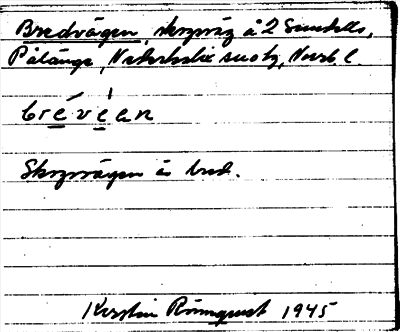 Bredvägen, skogsväg å 2 Sundells,
Pålänge, Nederkalix sn o tg, Norrb l.
brévèan
Skogsvägen är bred.
Kerstin Rönnquist 1945